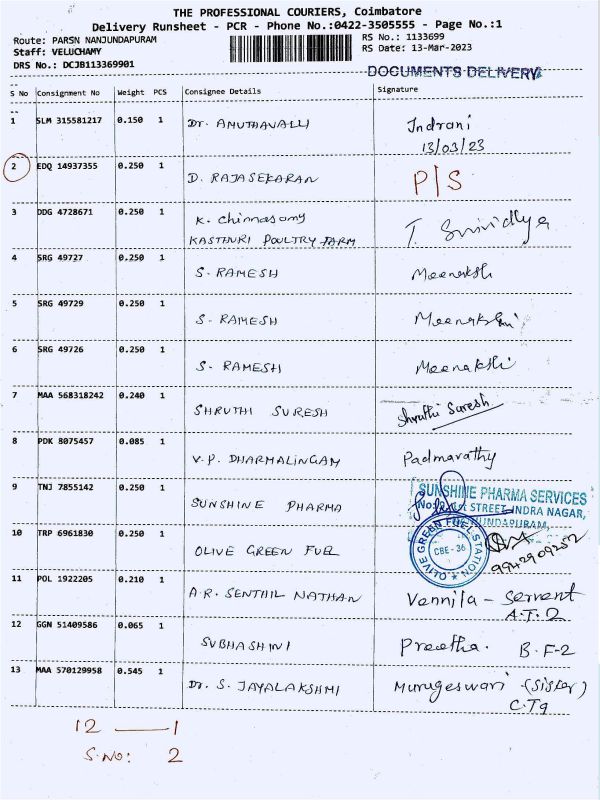 THE PROFESSIONAL COURIERS, Coimbatore
Delivery Runsheet - PCR - Phone No.:0422-3505555 - Page No.:1
Route: PARSN NANJUNDAPURAM
RS No.: 1133699
Staff: VELUCHAMY
RS Date: 13-Mar-2023
DRS No.: DCJB113369901
DOCUMENTS DELIVERY
S No Consignment No Weight PCS Consignee Details Signature
1 SLM 315581217 0.150 1 Dr. AMUTHAVALLI Indrani
13/03/23
2 EDQ 14937355 0.250 1 D. RAJASEKARAN P/S
3 DDG 4728671 0.250 1 K. Chinnasamy T. Srividhya
KASTHURI POULTRY FARM
4 SRG 49727 0.250 1 S. RAMESH Meenakshi
5 SRG 49729 0.250 1 S. RAMESH Meenakshi
6 SRG 49726 0.250 1 S. RAMESH Meenakshi
7 MAA 568318242 0.240 1 SHRUTHI SURESH Shruthi Suresh
8 PDK 8075457 0.085 1 V.P. DHARMALINGAM Padmavathy
9 TNJ 7855142 0.250 1 SUNSHINE PHARMA
SUNSHINE PHARMA SERVICES
STREET, INDRA NAGAR,
10 TRP 6961830 0.250 1 OLIVE GREEN FUEL
OLIVE GREEN FUEL STATION
CBE - 36
11 POL 1922205 0.210 1 A.R. SENTHIL NATHAN Vennila - Servent
A.T. 2
12 GGN 51409586 0.065 1 SUBHASHINI Preetha. B.F-2
13 MAA 570129958 0.545 1 Dr. S. JAYALAKSHMI Murugeswari (Sister)
12 — 1
S.NO: 2